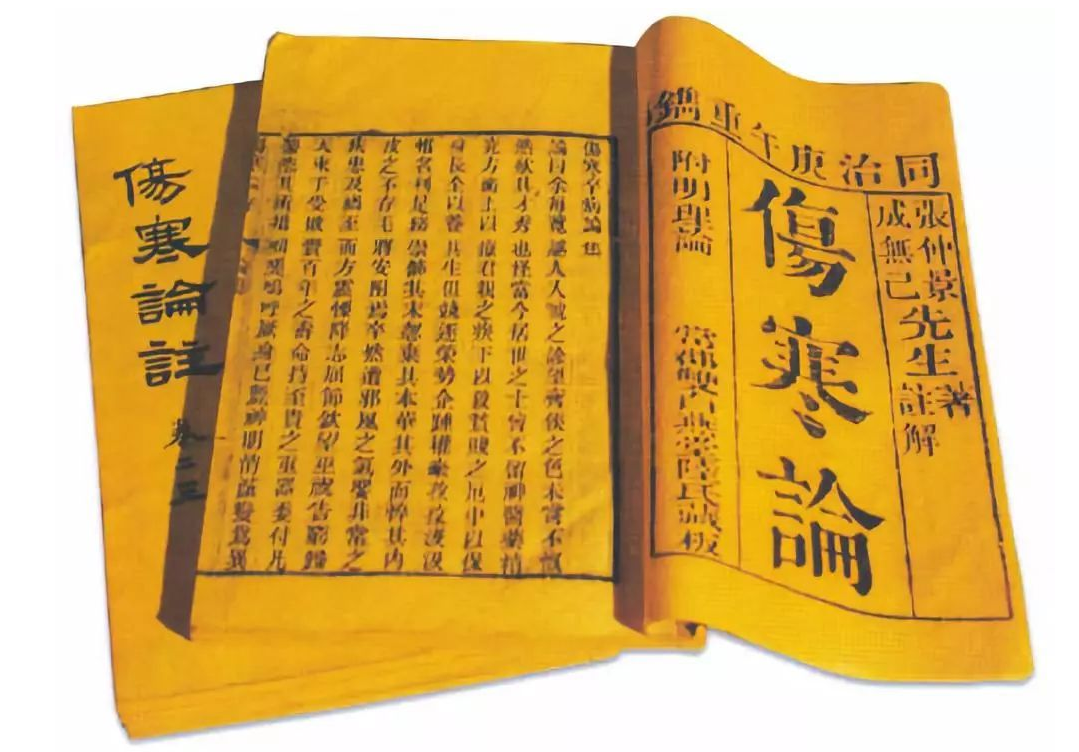 同治庚午重鐫
張仲景先生著
成無己先生註解
傷寒論
附明理論 常郡雙白燕堂陸氏藏板
傷寒卒病論集
論曰余每覽越人入虢之診望齊侯之色未嘗不慨
然歎其才秀也怪當今居世之士曾不留神醫藥精
究方術上以療君親之疾下以救貧賤之厄中以保
身長全以養其生但競逐榮勢企踵權豪孜孜汲汲
惟名利是務崇飾其末忽棄其本華其外而悴其內
皮之不存毛將安附焉卒然遭邪風之氣嬰非常之
疾患及禍至而方震慄降志屈節欽望巫祝告窮歸
天束手受敗賫百年之壽命持至貴之重器委付凡
醫恣其所措咄嗟嗚呼厥身已斃神明消滅變為異
傷寒論註
卷二三